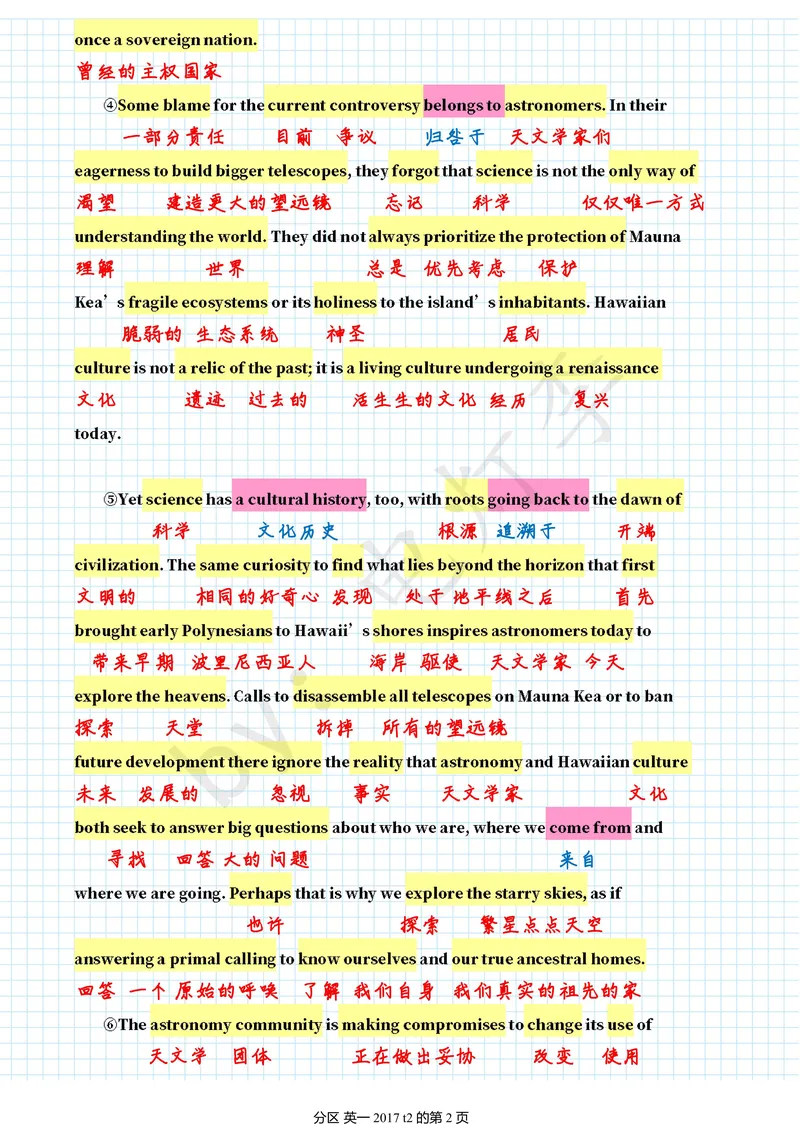 once a sovereign nation.
曾经的主权国家
④Some blame for the current controversy belongs to astronomers. In their
一部分责任 目前 争议 归咎于 天文学家们
eagerness to build bigger telescopes, they forgot that science is not the only way of
渴望 建造更大的望远镜 忘记 科学 仅仅唯一方式
understanding the world. They did not always prioritize the protection of Mauna
理解 世界 总是 优先考虑 保护
Kea’s fragile ecosystems or its holiness to the island’s inhabitants. Hawaiian
脆弱的 生态系统 神圣 居民
culture is not a relic of the past; it is a living culture undergoing a renaissance
文化 遗迹 过去的 活生生的文化 经历 复兴
today.
⑤Yet science has a cultural history, too, with roots going back to the dawn of
科学 文化历史 根源 追溯于 开端
civilization. The same curiosity to find what lies beyond the horizon that first
文明的 相同的好奇心 发现 处于 地平线之后 首先
brought early Polynesians to Hawaii’s shores inspires astronomers today to
带来早期 波里尼西亚人 海岸 驱使 天文学家 今天
explore the heavens. Calls to disassemble all telescopes on Mauna Kea or to ban
探索 天堂 拆掉 所有的望远镜
future development there ignore the reality that astronomy and Hawaiian culture
未来 发展的 忽视 事实 天文学家 文化
both seek to answer big questions about who we are, where we come from and
寻找 回答 大的 问题 来自
where we are going. Perhaps that is why we explore the starry skies, as if
也许 探索 繁星点点天空
answering a primal calling to know ourselves and our true ancestral homes.
回答 一个 原始的呼唤 了解 我们自身 我们真实的祖先的家
⑥The astronomy community is making compromises to change its use of
天文学 团体 正在做出妥协 改变 使用
by:电灯李
分区 英一 2017 t2 的第 2 页